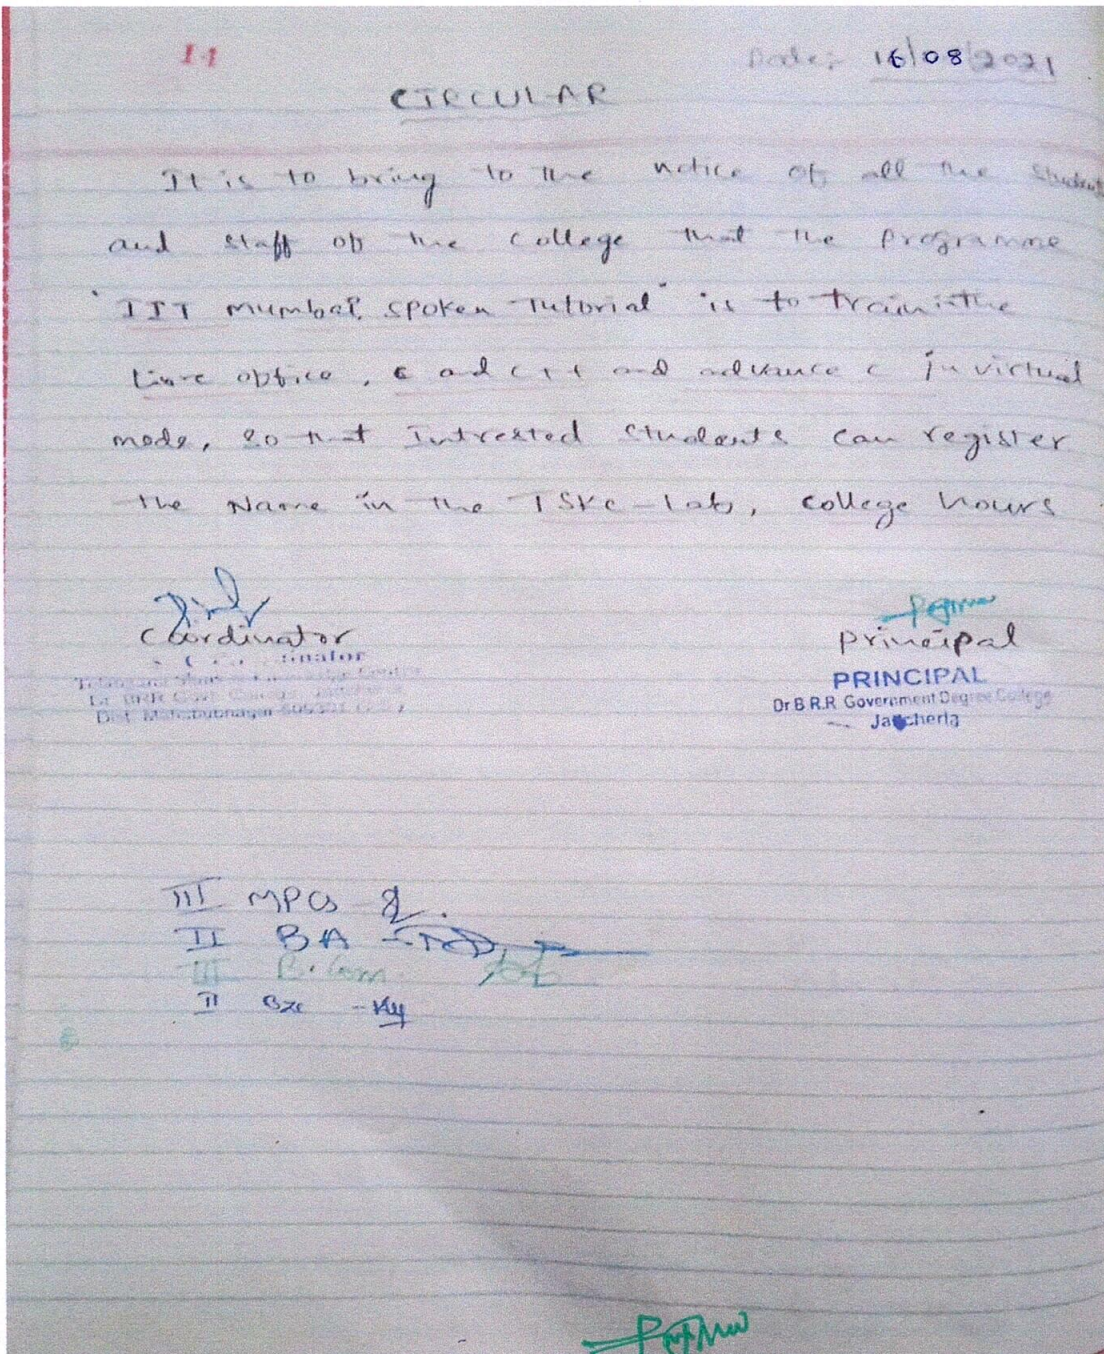 14
Date: 16/08/2021
CIRCULAR
It is to bring to the notice of all the students
and staff of the college that the programme
"IIT Mumbai, spoken Tutorial" is to train the
Libre office, c and c++ and advance c in virtual
mode, so that Intrested students can register
the Name in the TSKC-lab, college hours
Coordinator
Principal
PRINCIPAL
Dr B.R.R Government Degree College
Jadcherla
Dr. BRR Govt
Dist Mahabubnagar
III MPCs
II BA
III B.Com
II BZC